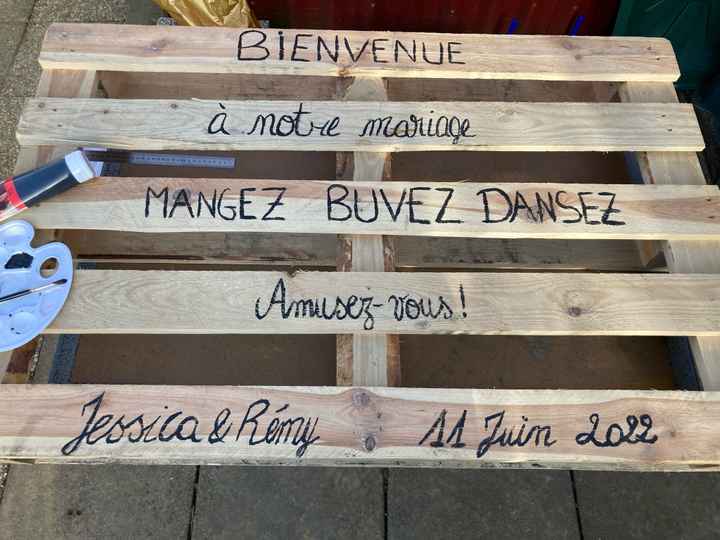 BIENVENUE
à notre mariage
MANGEZ BUVEZ DANSEZ
Amusez-vous!
Jessica & Rémy 11 Juin 2022